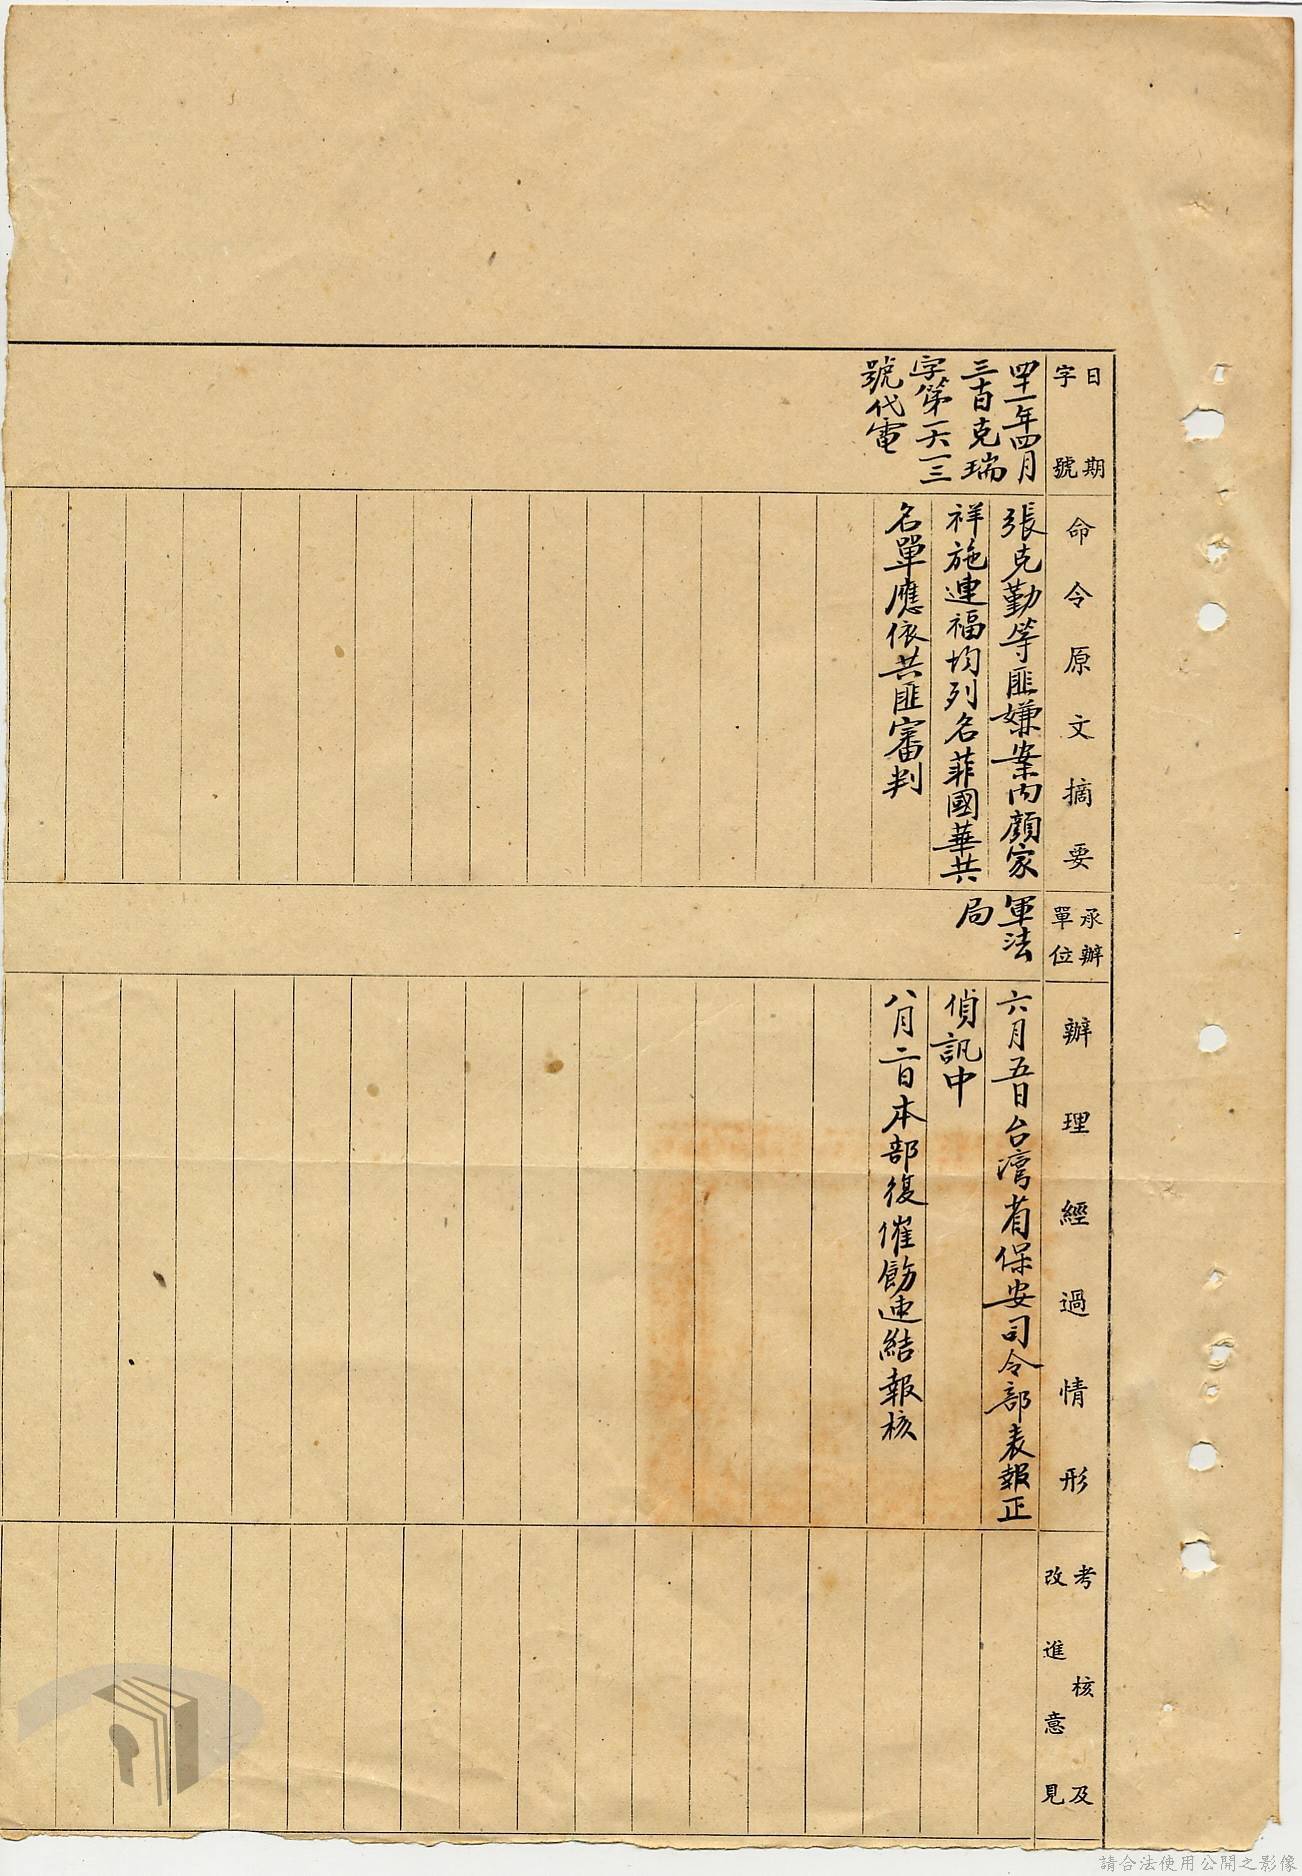 日期
字號
四十一年四月
三十日克瑞
字第一六一三
號代電
命令原文摘要
張克勤等匪嫌案內顏家
祥施連福均列名菲國華共
名單應依共匪審判
承辦
單位
軍法
局
辦理經過情形
六月五日台灣省保安司令部表報正
偵訊中
八月二日本部復催飭速結報核
考核及
改進意見
請合法使用公開之影像